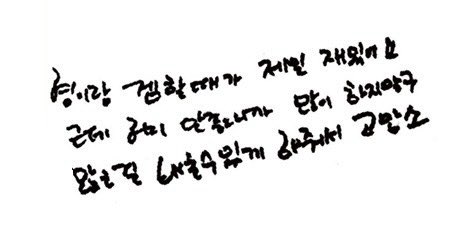 형이랑 겜할때가 제일 재밌어요
근데 하미 안좋으니까 많이 하지말구
맑은걸 배울수있게 해주셔서 고맙소